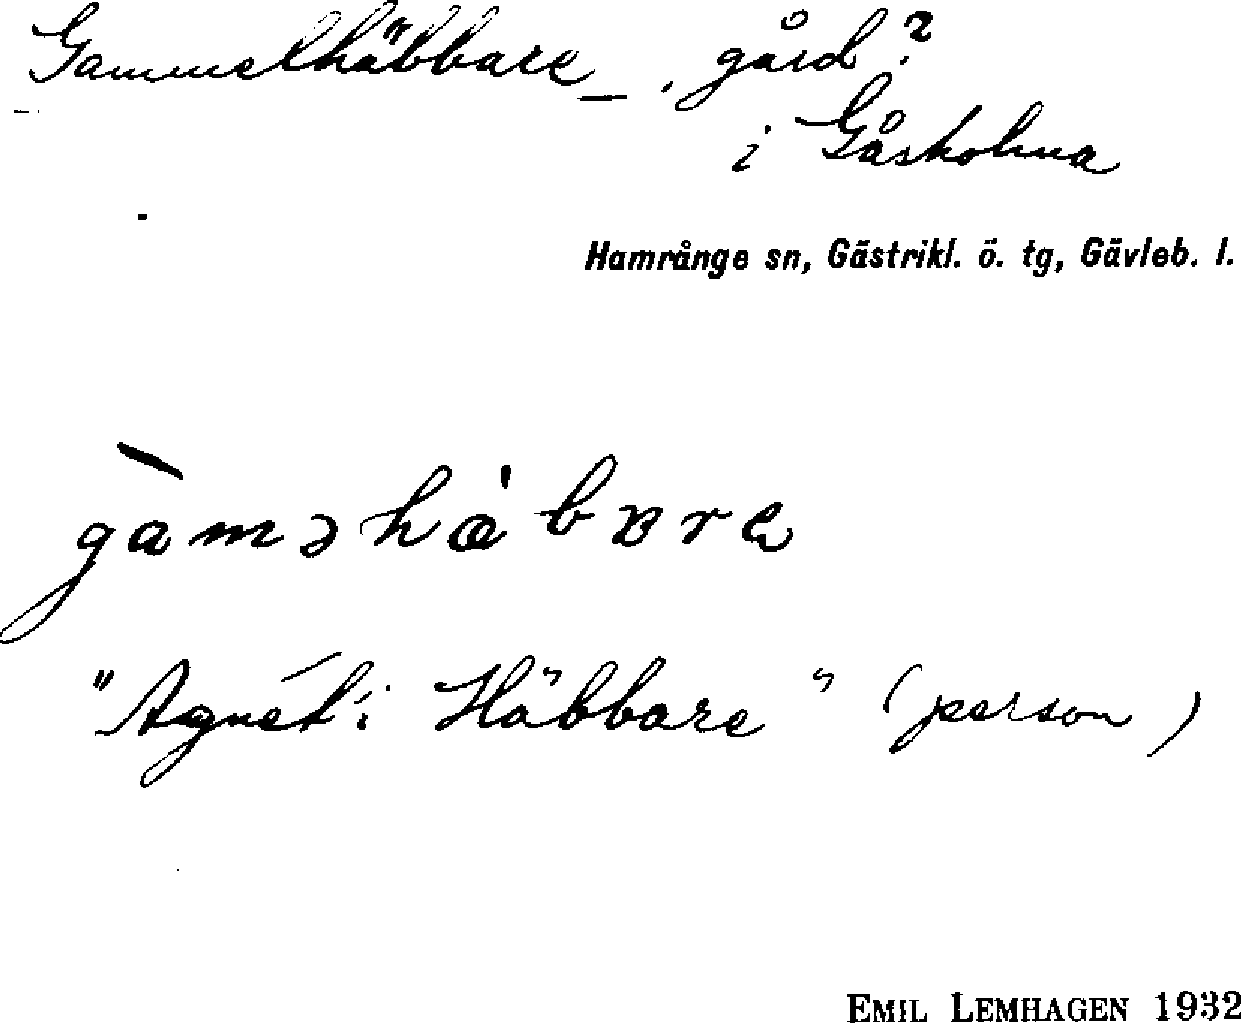 Gammelhäbbare, gård?
i Gåsholma
Hamrånge sn, Gästrikl. ö. tg, Gävleb. l.
gàməhæ̀bɐra
"Agnét i Häbbare" (person)
EMIL LEMHAGEN 1932